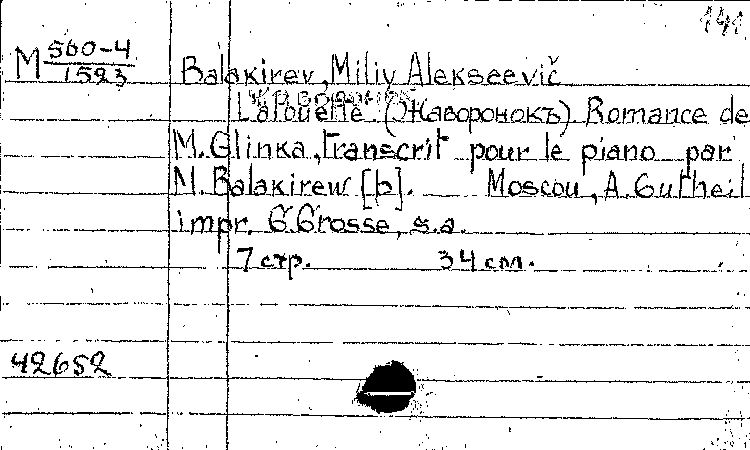 141
M 560-4
1523
Balakirev, Miliy Alekseevič
L'alouette (Жаворонокъ) Romance de
M. Glinka, transcrit pour le piano par
M. Balakirew [b]. Moscou, A. Gutheil
impr. G. Grosse, s.a.
7 стр. 34 см.
42652